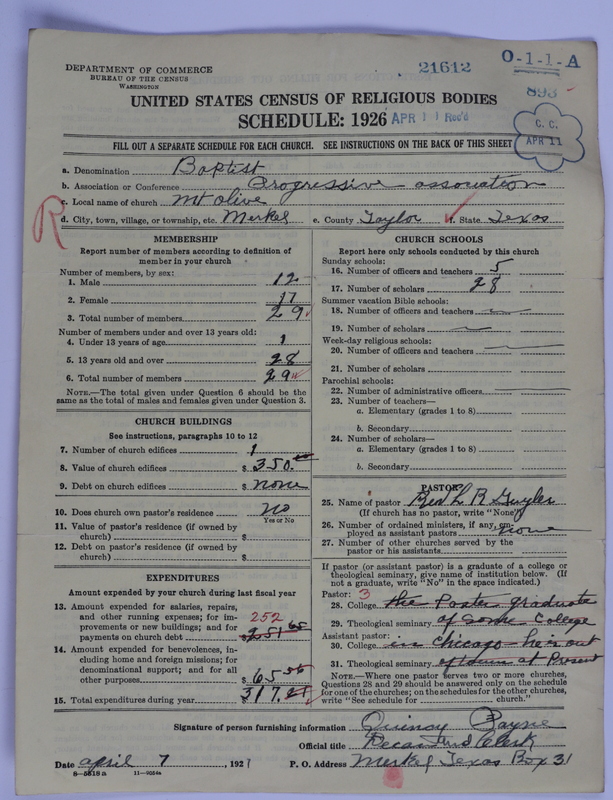 DEPARTMENT OF COMMERCE
BUREAU OF THE CENSUS
WASHINGTON
21612
O-1-1-A
893
UNITED STATES CENSUS OF RELIGIOUS BODIES
SCHEDULE: 1926
APR 11 Rec'd
C. C.
APR 11
FILL OUT A SEPARATE SCHEDULE FOR EACH CHURCH. SEE INSTRUCTIONS ON THE BACK OF THIS SHEET
a. Denomination Baptist
b. Association or Conference Progressive association
c. Local name of church Mt olive
R
d. City, town, village, or township, etc. Merkel e. County Taylor f. State Texas
MEMBERSHIP
Report number of members according to definition of
member in your church
Number of members, by sex:
1. Male 12
2. Female 17
3. Total number of members 29
Number of members under and over 13 years old:
4. Under 13 years of age 1
5. 13 years old and over 28
6. Total number of members 29
NOTE.—The total given under Question 6 should be
the same as the total of males and females given under Question 3.
CHURCH BUILDINGS
See instructions, paragraphs 10 to 12
7. Number of church edifices 1
8. Value of church edifices $ 350.00
9. Debt on church edifices $ none
10. Does church own pastor's residence no
Yes or No
11. Value of pastor's residence (if owned by
church) $
12. Debt on pastor's residence (if owned by
church) $
EXPENDITURES
Amount expended by your church during last fiscal year
13. Amount expended for salaries, repairs,
and other running expenses; for im-
provements or new buildings; and for
payments on church debt
252
$ 251 65
14. Amount expended for benevolences, in-
cluding home and foreign missions; for
denominational support; and for all
other purposes $ 65
15. Total expenditures during year $ 317.
CHURCH SCHOOLS
Report here only schools conducted by this church
Sunday schools:
16. Number of officers and teachers 5
17. Number of scholars 28
Summer vacation Bible schools:
18. Number of officers and teachers
19. Number of scholars
Week-day religious schools:
20. Number of officers and teachers
21. Number of scholars
Parochial schools:
22. Number of administrative officers
23. Number of teachers—
a. Elementary (grades 1 to 8)
b. Secondary
24. Number of scholars—
a. Elementary (grades 1 to 8)
b. Secondary
PASTOR
25. Name of pastor Rev L R
(If church has no pastor, write "None")
26. Number of ordained ministers, if any, em-
ployed as assistant pastors none
27. Number of other churches served by the
pastor or his assistants
If pastor (or assistant pastor) is a graduate of a college or
theological seminary, give name of institution below. (If
not a graduate, write "No" in the space indicated.)
Pastor: 3
28. College the Paster graduate
29. Theological seminary of Some College
Assistant pastor:
30. College in Chicago he is out
31. Theological seminary of town at Present
NOTE.—Where one pastor serves two or more churches,
Questions 28 and 29 should be answered only on the schedule
for one of the churches; on the schedules for the other churches,
write "See schedule for church."
Signature of person furnishing information Quincy Payne
Official title Decan and Clerk
Date april 7, 1927 P. O. Address Merkel Texas Box 31
8—5518 a 11—9054a